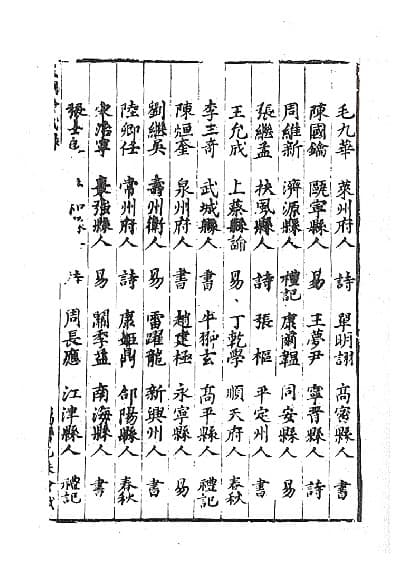 毛九華 萊州府人 詩 單明詡 高密縣人 書
陳國鑰 甌寧縣人 易 王夢尹 寧晉縣人 詩
周維新 濟源縣人 禮記 康爾韞 同安縣人 易
張繼孟 扶風縣人 詩 張樞 平定州人 書
王允成 上蔡縣諭 易 丁乾學 順天府人 春秋
李三奇 武城縣人 書 玄 高平縣人 禮記
陳烜奎 泉州府人 書 趙建極 永寧縣人 易
劉繼吳 壽州衛人 易 雷躍龍 新興州人 書
陸卿任 常州府人 詩 康姬鼎 郃陽縣人 春秋
寧 棗強縣人 易 關季益 南海縣人 書
張士 周長應 江津縣人 禮記